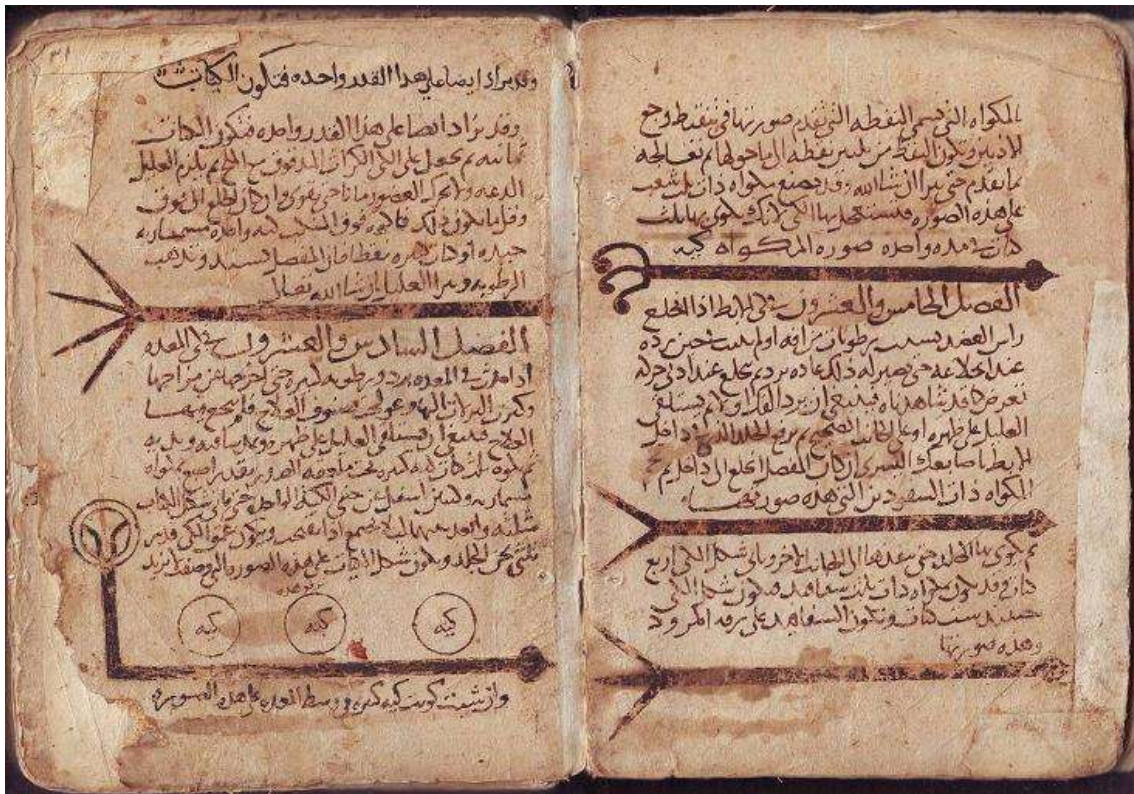 المكواه التي تسمى النقطه التي تقدم صورتها في تنقط وجع
الاذنين وتكون النقط من نقطه الى ما حولها ثم تعالجه
بما تقدم حتى يبرا ان شا الله وقد يصنع مكواه ذات ثلث شعب
على هذه الصوره فتستعمل بها الكي لانك تكوي بها ثلث
كيات في مره واحده صوره المكواه كيه
الفصل الخامس والعشرون في كي الابط اذا انخلع
راس العضد بسبب رطوبات مزلقه او لم يثبت حين رده
عند انخلاعه حتى يصير له ذلك عاده يرد ثم ينخلع عند ادنى حركه
تعرض كما قد شاهدناه فينبغي ان يرد الفك اولا ثم يستلقي
العليل على ظهره او على الجانب الصحيح ثم يرفع الجلد الذي في داخل
الابط باصابعك اليسرى ان كان المفصل انخلع الى داخل ثم
المكواه ذات السفودين التي هذه صورتها
ثم تكوي بها الجلد حتى تنفذها الى الجانب الاخر وياتي شكل الكي اربع
كيات وقد تكوى بمكواه ذات ثلث سفافيد فيكون شكل الكي
حينئذ ست كيات وتكون السفافيد على رقه المرود
وهذه صورتها
٣١
وقد يزاد ايضا على هذا القدر واحده فتكون الكيات
وقد يزاد ايضا على هذا القدر واحده فتكون الكيات
ثمانيه ثم يحمل على الكي الكراث المدقوق مع الملح ثم يلزم العليل
الدعه ولا يحرك العضو زمانا حتى يقوى وان كان الخلع الى فوق
وقل ما يكون ذلك فاكوه فوق المنكب كيه واحده مسماريه
جيده او كيات كثيره تنقيطا فان المفصل يشتد وتذهب
الرطوبه ويبرا العليل ان شا الله تعالى
الفصل السادس والعشرون في كي المعده
اذا حدث في المعده برد ورطوبه كثيره حتى اخرجها عن مزاجها
وكثرت النزلات اليها وعولج بصنوف العلاج فلم ينجح فيها
العلاج فينبغي ان يستلقي العليل على ظهره ويمد ساقيه ويديه
ثم تكويه ثلث كيات كيه تحت الصدر بقدر اصبع بمكواه
مسماريه وكيتين اسفل من جنبي الكيه الواحده حتى ياتي شكل الكيات
مثلثه وابعد بينها ليلا تجتمع اذا تقيحت ويكون عمق الكي قدر
ثلثي ثخن الجلد ويكون شكل الكيات على هذه الصوره
كيه كيه كيه
وان شيت كويت كيه كبيره في وسط المعده على هذه الصوره